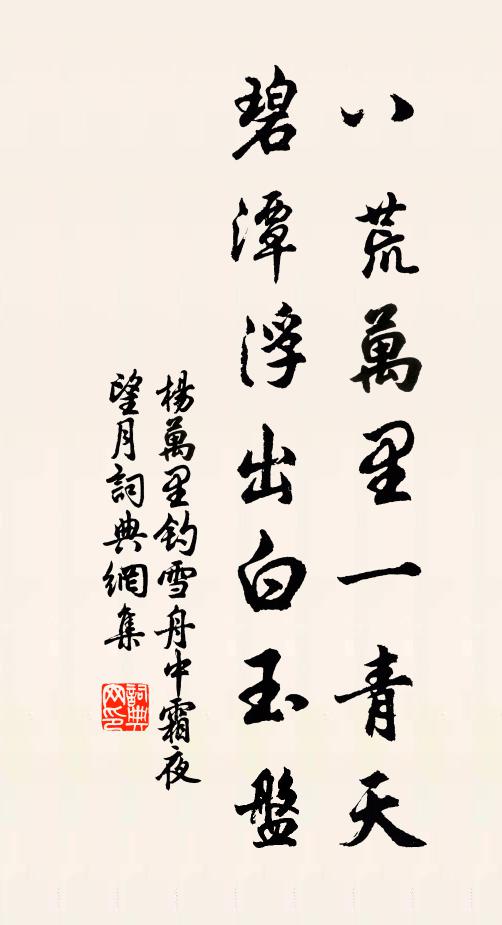 八荒萬里一青天
碧潭浮出白玉盤
楊萬里釣雪舟中霜夜
望月詞典網集
詞典
网印